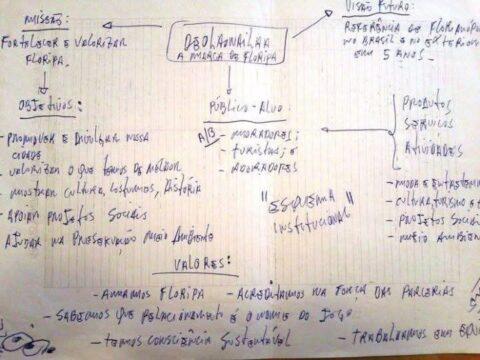 MISSÃO:
FORTALECER E VALORIZAR
FLORIPA.
A MARCA DE FLORIPA
VISÃO FUTURO:
REFERÊNCIA DE FLORIANÓPO
NO BRASIL E NO EXTERIOR
EM 5 ANOS.
OBJETIVOS:
- PROMOVER E DIVULGAR NOSSA
CIDADE
- VALORIZAR O QUE TEMOS DE MELHOR
- MOSTRAR CULTURA, COSTUMES, HISTÓRIA
- APOIAR PROJETOS SOCIAIS
AJUDAR NA PRESERVAÇÃO MEIO AMBIENTE
PÚBLICO-ALVO:
A/B - MORADORES;
- TURISTAS; E
- ADORADORES
PRODUTOS
SERVIÇOS
ATIVIDADES
- MODA E ENTRETENIM
- CULTURA, TURISMO E
- PROJETOS SOCIAI
- MEIO AMBIEN
"ESQUEMA
INSTITUCIONAL"
VALORES:
- AMAMOS FLORIPA
- ACREDITAMOS NA FORÇA DAS PARCERIAS
- SABEMOS QUE RELACIONAMENTO É O NOME DO JOGO
- TEMOS CONSCIÊNCIA SUSTENTÁVEL
- TRABALHAMOS EM EQUI